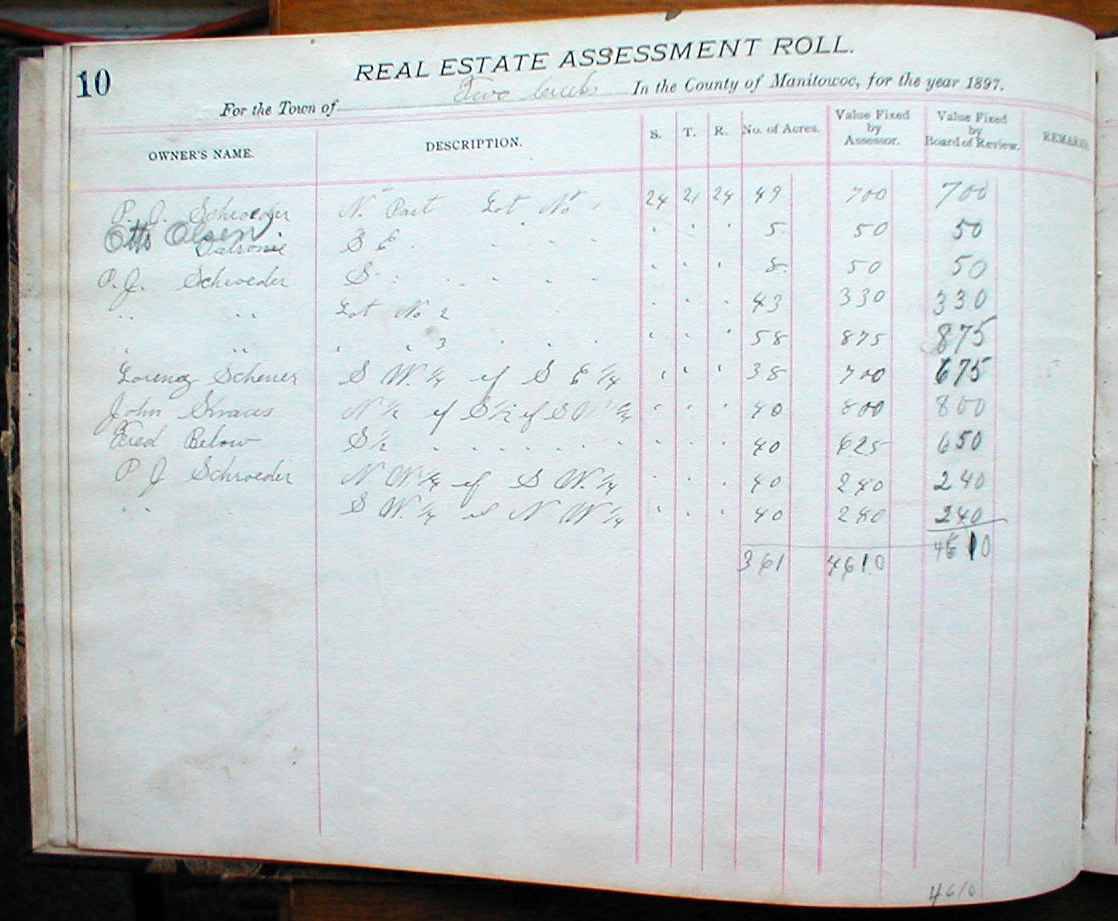 10
REAL ESTATE ASSESSMENT ROLL.
For the Town of Two Creeks In the County of Manitowoc, for the year 1897.
OWNER'S NAME. DESCRIPTION. S. T. R. No. of Acres. Value Fixed by Assessor. Value Fixed by Board of Review. REMARKS
P. J. Schroeder N. Part Lot No 1 24 21 24 49 700 700
Otto Olsen S E " " " " " " 5 50 50
P. J. Schroeder S " " " " " " 8 50 50
" " Lot No 2 " " " 43 330 330
" " " " 3 " " " 58 875 875
Lorenz Scheuer S W. 1/4 of S E 1/4 " " " 38 700 675
John Straus N 1/2 of S 1/2 of S W 1/4 " " " 40 800 800
Fred Below S 1/2 " " " " " " " " 40 625 650
P J Schroeder N W 1/4 of S W. 1/4 " " " 40 240 240
" " S W. 1/4 of N W 1/4 " " " 40 240 240
361 4610 4610
4610